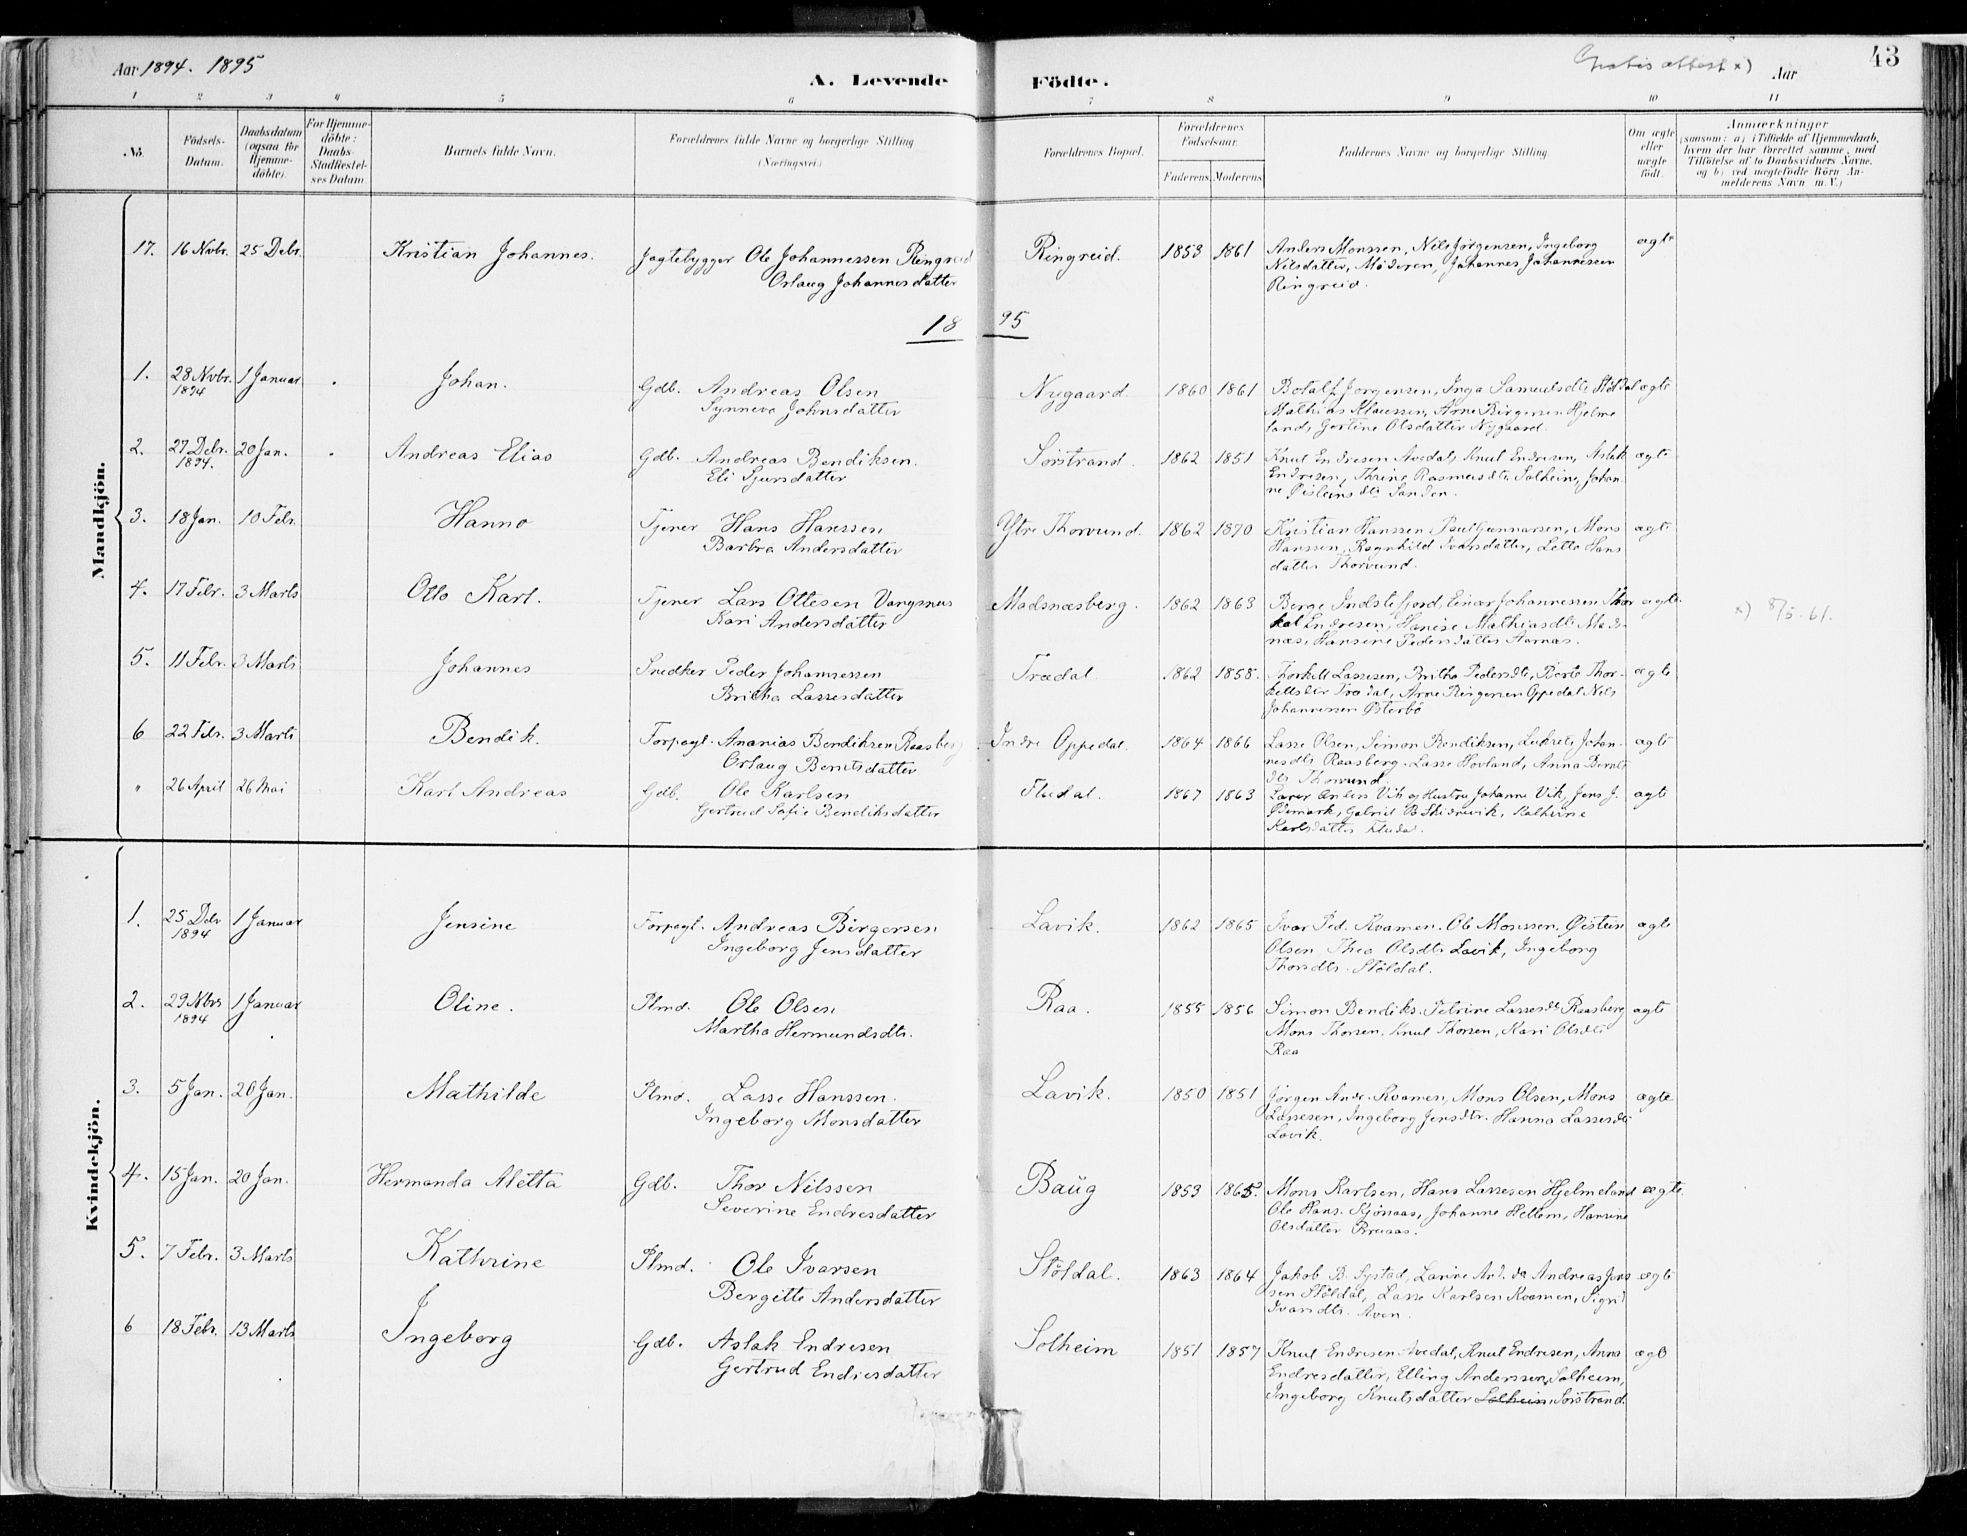 Aar 1894. 1895
A. Levende Födte.
Gratis attest x) Aar 43
1 2 3 4 5 6 7 8 9 10 11
No. Födsels-Datum. Daabsdatum (ogsaa for Hjemmedöbte). For Hjemmedöbte: Daabs-Stadfæstelses Datum. Barnets fulde Navn. Forældrenes fulde Navne og borgerlige Stilling (Næringsvei.) Forældrenes Bopæl. Forældrenes Födselsaar. Faderens. Moderens. Faddernes Navne og borgerlige Stilling. Om ægte eller uægte födt. Anmærkninger (saasom: a) i Tilfælde af Hjemmedaab, hvem der har forrettet samme, med Tilföielse af to Daabsvidners Navne, og b) ved uægtefödte Börn Anmelderens Navn m. V.)
Mandkjön.
17. 16 Novbr. 25 Debr. Kristian Johannes. Jagtebygger Ole Johannessen Ringreid Ringreid. 1853 1861 Anders Monssen, Nils Jörgensen, Ingeborg ægte
Orlaug Johannesdatter Nilsdatter, Moderen, Johannes Johannessen
Ringreid.
18 95
1. 28 Novbr. 1 Januar Johan. Gdb. Andreas Olsen Nygaard 1860 1861 Botolf Jørgensen, Inga Samuelsdtr Støldal ægte
1894 Synneva Johnsdatter Mathias Klaussen, Arne Birgersen Hjelme
land, Gertine Olsdatter Nygaard.
2. 27 Debr. 20 Jan. Andreas Elias Gdb. Andreas Bendiksen. Sørstrand. 1862 1851 Knut Endresen Avedal, Knut Endresen, Aslak ægte
1894. Eli Sjursdatter Endresen, Thrine Rasmusdtr Solheim, Johan
ne Øisteinsdtr Sanden.
3. 18 Jan. 10 Febr. Hanno Tjener Hans Hanssen Ytre Thorvund. 1862 1870 Kristian Hanssen, Paul Gunnarsen, Mons ægte
Barbra Andersdatter Hanssen, Ragnhild Ivarsdatter, Letta Hans
datter Thorvund.
4. 17 Febr. 3 Marts Otto Karl. Tjener Lars Ottesen Vangsnes Madsnæsberg. 1862 1863 Berge Indstefjord, Einar Johannessen Thor ægte. x) 8/5-61.
Kari Andersdatter kel Endresen, Hanise Mathiasdtr Mads
næs, Hansine Pedersdatter Aarnæs.
5. 11 Febr. 3 Marts Johannes Snedker Peder Johannessen Trædal. 1862 1858. Thorkell Lassesen, Britha Pedersdtr, Berte Thor- ægte
Britha Lassesdatter kelsdtr Trædal, Arne Birgersen Oppedal Nils
Johannessen Østerbø
6 22 Febr. 3 Marts Bendik. Forpagt. Ananias Bendiksen Raasberg Indre Oppedal. 1864 1866 Lasse Olsen, Simon Bendiksen, Lukrets Johan- ægte
Orlaug Berntsdatter nesdtr Raasberg. Lasse Hovland, Anna Bernts
dtr Thorvund.
" 26 April 26 Mai Karl Andreas Gdb. Ole Karlsen Fludal. 1867 1863 Lærer Anders Vik og Hustru Johanne Vik, Jens J. ægte
Gertrud Sofie Bendiksdatter Ødemark, Gabriel B. Skidrevik, Kathrine
Karlsdatter Fludal.
Kvindekjön.
1. 25 Debr 1 Januar Jensine Forpagt. Andreas Birgersen Lavik. 1862 1865 Ivar Ped. Kvamen. Ole Monssen, Øistein ægte
1894 Ingeborg Jensdatter Olsen Thea Olsdtr Lavik, Ingeborg
Thorsdtr. Støldal.
2. 29 Nbr 1 Januar Oline. Plmd. Ole Olsen Raa. 1855 1856 Simon Bendiks. Petrine Lassesdtr Raasberg ægte
1894 Martha Hermundsdtr. Mons Thorsen, Knut Thorsen, Kari Olsdtr
Raa
3. 5 Jan. 20 Jan. Mathilde Plmd. Lasse Hanssen. Lavik. 1850 1851 Jørgen Andr. Kvamen, Mons Olsen, Mons ægte
Ingeborg Monsdatter Lassesen, Ingeborg Jensdtr. Hanna Lassesdtr
Lavik.
4. 15 Jan. 20 Jan. Hermanda Aletta Gdb. Thor Nilssen Baug 1853 1865? Mons Karlsen, Hans Lassesen Hjelmeland ægte.
Severine Endresdatter Ole Hans. Kjönaas, Johanne Hellem, Hansine
Olsdatter
5. 7 Febr. 3 Marts Kathrine Plmd. Ole Ivarsen Støldal. 1863 1864 Jakob B. Systad, Larine And. da Andreas Jens ægte
Bergitte Andersdatter sen Støldal, Lasse Karlsen Kvamen, Sigrid
Ivarsdtr. Aven.
6 18 Febr. 13 Marts Ingeborg Gdb. Aslak Endresen Solheim 1851 1857 Knut Endresen Avedal, Knut Endresen, Anna ægte
Gertrud Endresdatter Endresdatter, Elling Anderssen Solheim,
Ingeborg Knutsdatter Solheim Sørstrand.